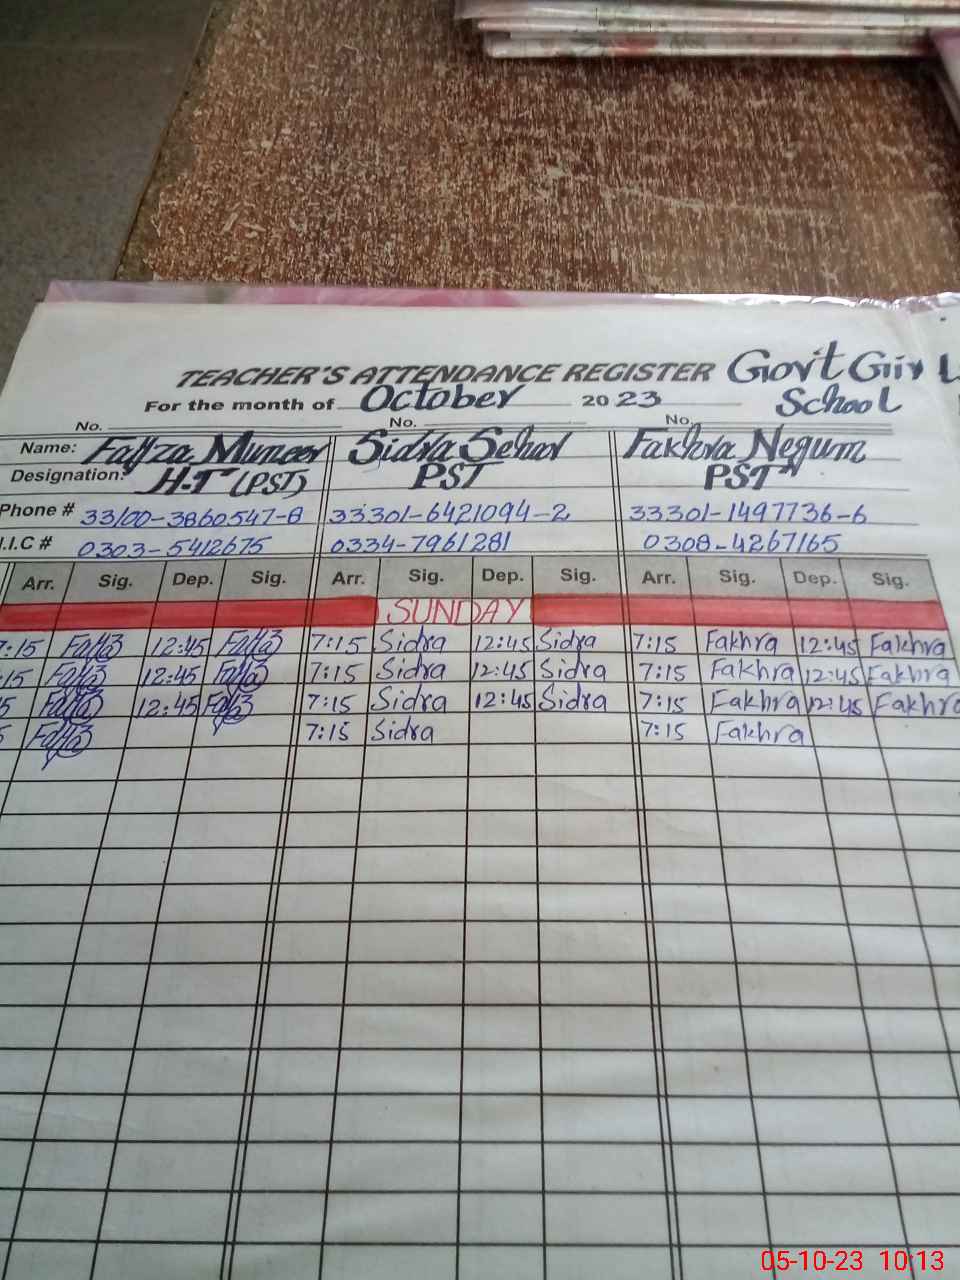 TEACHER'S ATTENDANCE REGISTER Gov't Girl
For the month of October 2023 School
No. No. No.
Name: Faiza Muneer Sidra Sehar Fakhra Negum
Designation: H-T (PST) PST PST
Phone # 33100-3860547-8 33301-6421094-2 33301-1497736-6
I.I.C # 0303-5412675 0334-7961281 0308-4267165
Arr. Sig. Dep. Sig. Arr. Sig. Dep. Sig. Arr. Sig. Dep. Sig.
SUNDAY
7:15 Faiza 12:45 Faiza 7:15 Sidra 12:45 Sidra 7:15 Fakhra 12:45 Fakhra
:15 Faiza 12:45 Faiza 7:15 Sidra 12:45 Sidra 7:15 Fakhra 12:45 Fakhra
5 Faiza 12:45 Faiza 7:15 Sidra 12:45 Sidra 7:15 Fakhra 12:45 Fakhra
5 Faiza 7:15 Sidra 7:15 Fakhra
05-10-23 10:13